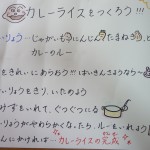 カレーライスをつくろう!!!
リョウ→じゃがいも にんじん たまねぎ
カレーのルー
をきれいにあらおう!!!
りょうをきり、いためる
みずをいれて、ぐつぐつにる
りょうがやわらかくなったら、ルーをいれよう
にかければ…カレーライスの完成